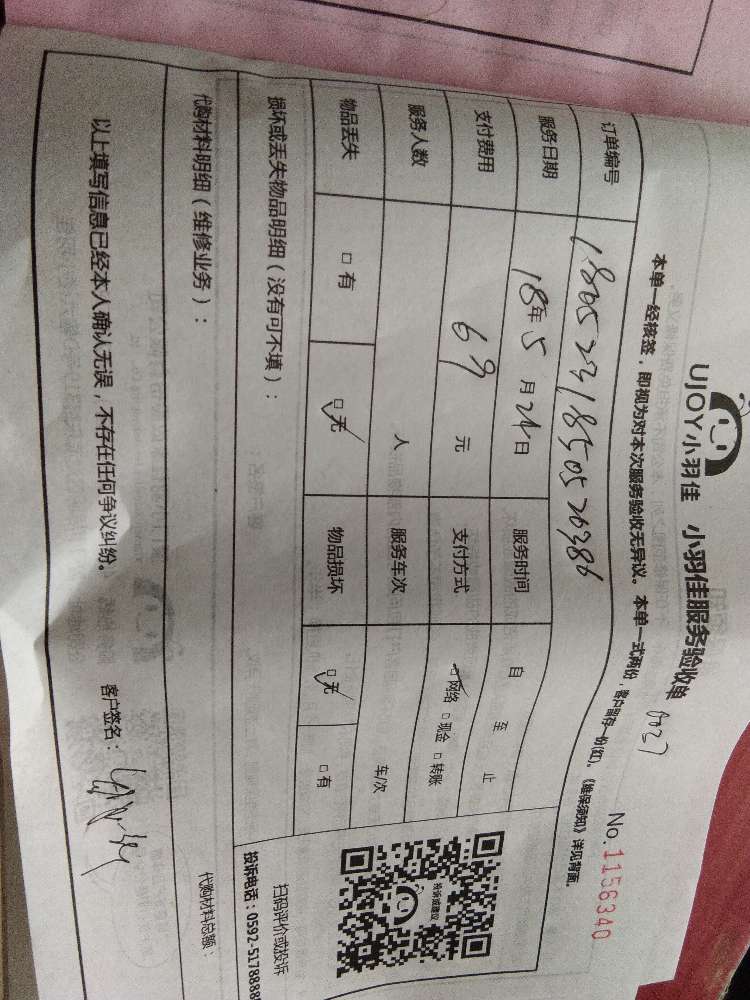 UJOY小羽佳 小羽佳服务验收单 0027
No.1156340
本单一经核签，即视为对本次服务验收无异议。本单一式两份，客户留存一份(红)。《维保须知》详见背面。
订单编号
服务日期 18年5月24日 服务时间 自 至 止
支付费用 69 元 支付方式 □网络 □现金 □转账
服务人数 人 服务车次 车/次
物品丢失 □有 □无 物品损坏 □无 □有
损坏或丢失物品明细（没有可不填）：
代购材料明细（维修业务）： 代购材料总额：
以上填写信息已经本人确认无误，不存在任何争议纠纷。 客户签名：
投诉或建议
扫码评价或投诉
投诉电话：0592-5178888